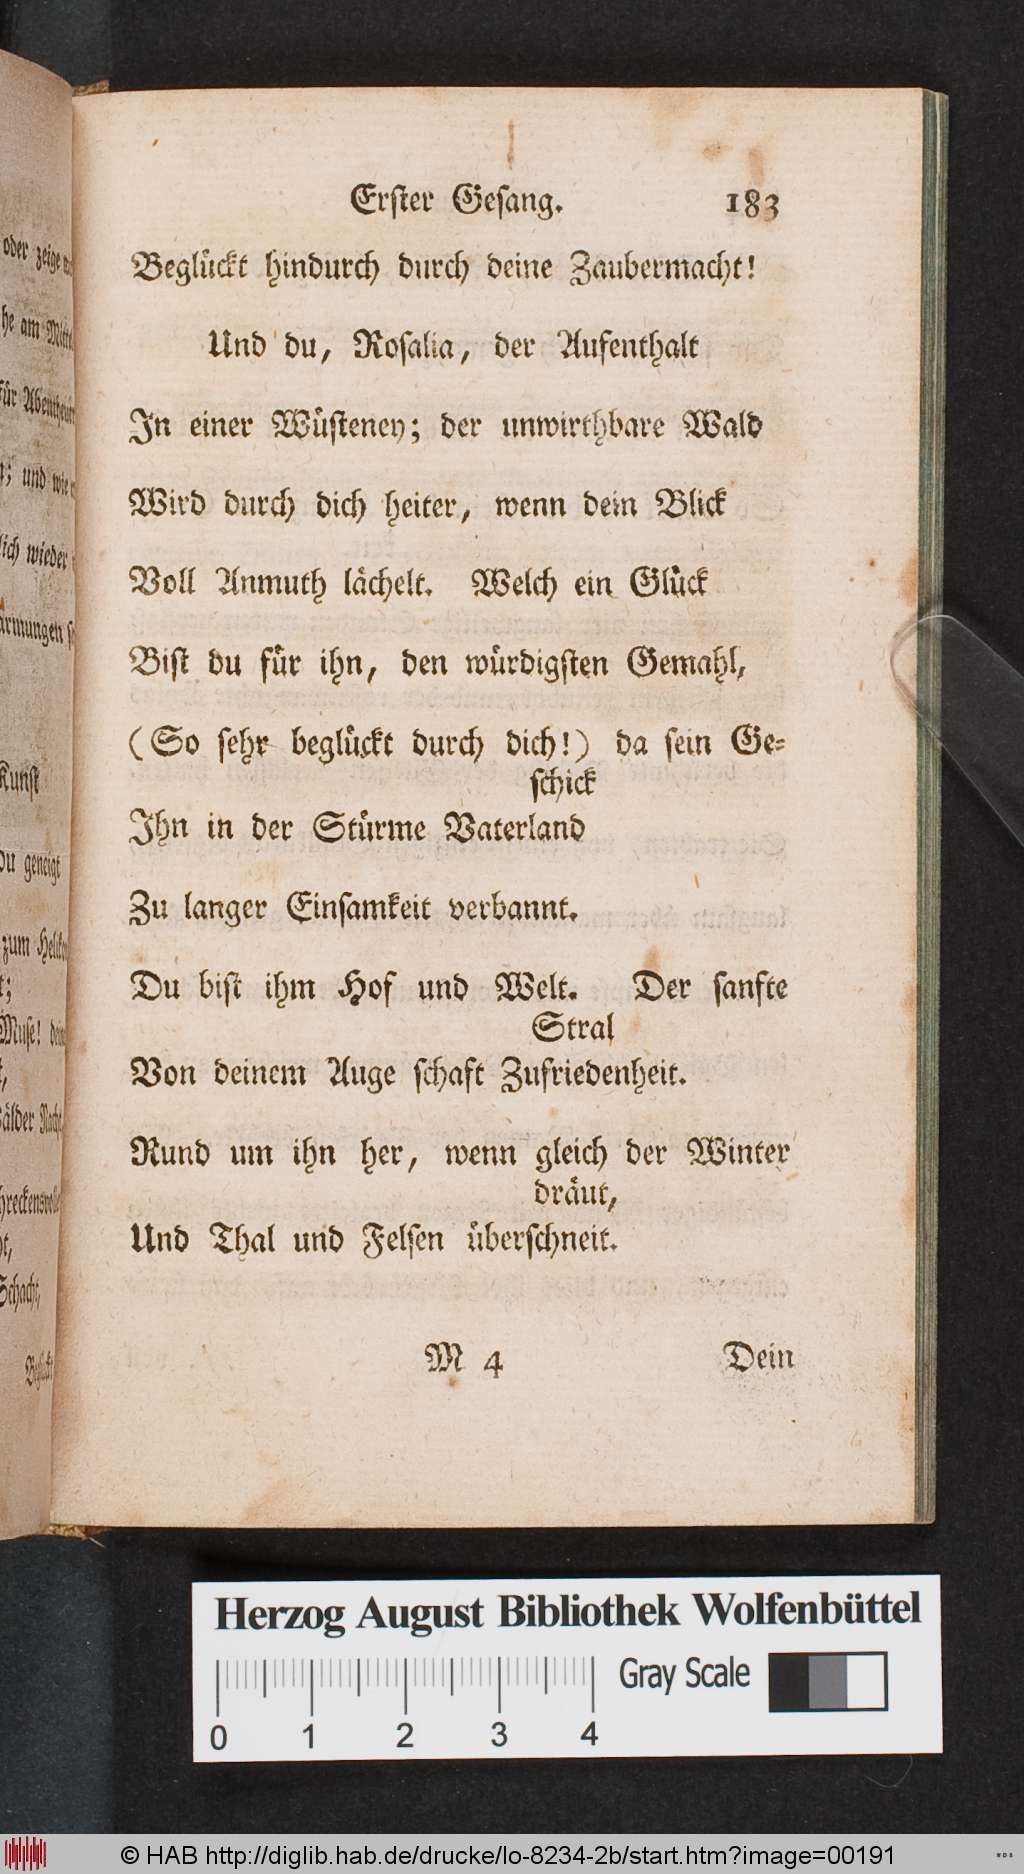 oder zeige
he am Mitt
für Abentheu
; und wie
lich wieder
armungen
Kunst
du geneigt
zum Helik
Muse!
Wälder Nacht
hreckensvolle
Schacht,
Beglückt
Erster Gesang. 183
Beglückt hindurch durch deine Zaubermacht!
Und du, Rosalia, der Aufenthalt
In einer Wüsteney; der unwirthbare Wald
Wird durch dich heiter, wenn dein Blick
Voll Anmuth lächelt. Welch ein Glück
Bist du für ihn, den würdigsten Gemahl,
(So sehr beglückt durch dich!) da sein Ge-
schick
Ihn in der Stürme Vaterland
Zu langer Einsamkeit verbannt.
Du bist ihm Hof und Welt. Der sanfte
Stral
Von deinem Auge schaft Zufriedenheit.
Rund um ihn her, wenn gleich der Winter
dräut,
Und Thal und Felsen überschneit.
M 4 Dein
Herzog August Bibliothek Wolfenbüttel
Gray Scale
0 1 2 3 4
© HAB http://diglib.hab.de/drucke/lo-8234-2b/start.htm?image=00191